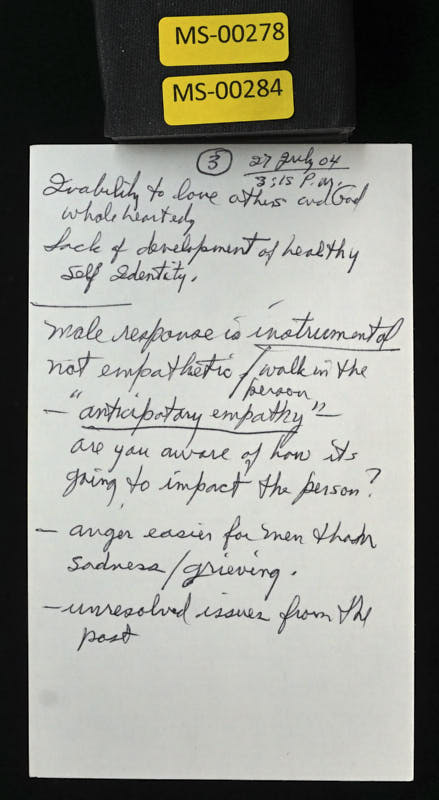 MS-00278
MS-00284
3 27 July 04
3:15 P.M.
Inability to love others and God
wholeheartedly
Lack of development of healthy
Self Identity.
Male response is instrumental
not empathetic / walk in the
person
- "anticipatory empathy" -
are you aware of how its
going to impact the person?
- anger easier for men than
sadness / grieving.
- unresolved issues from the
past